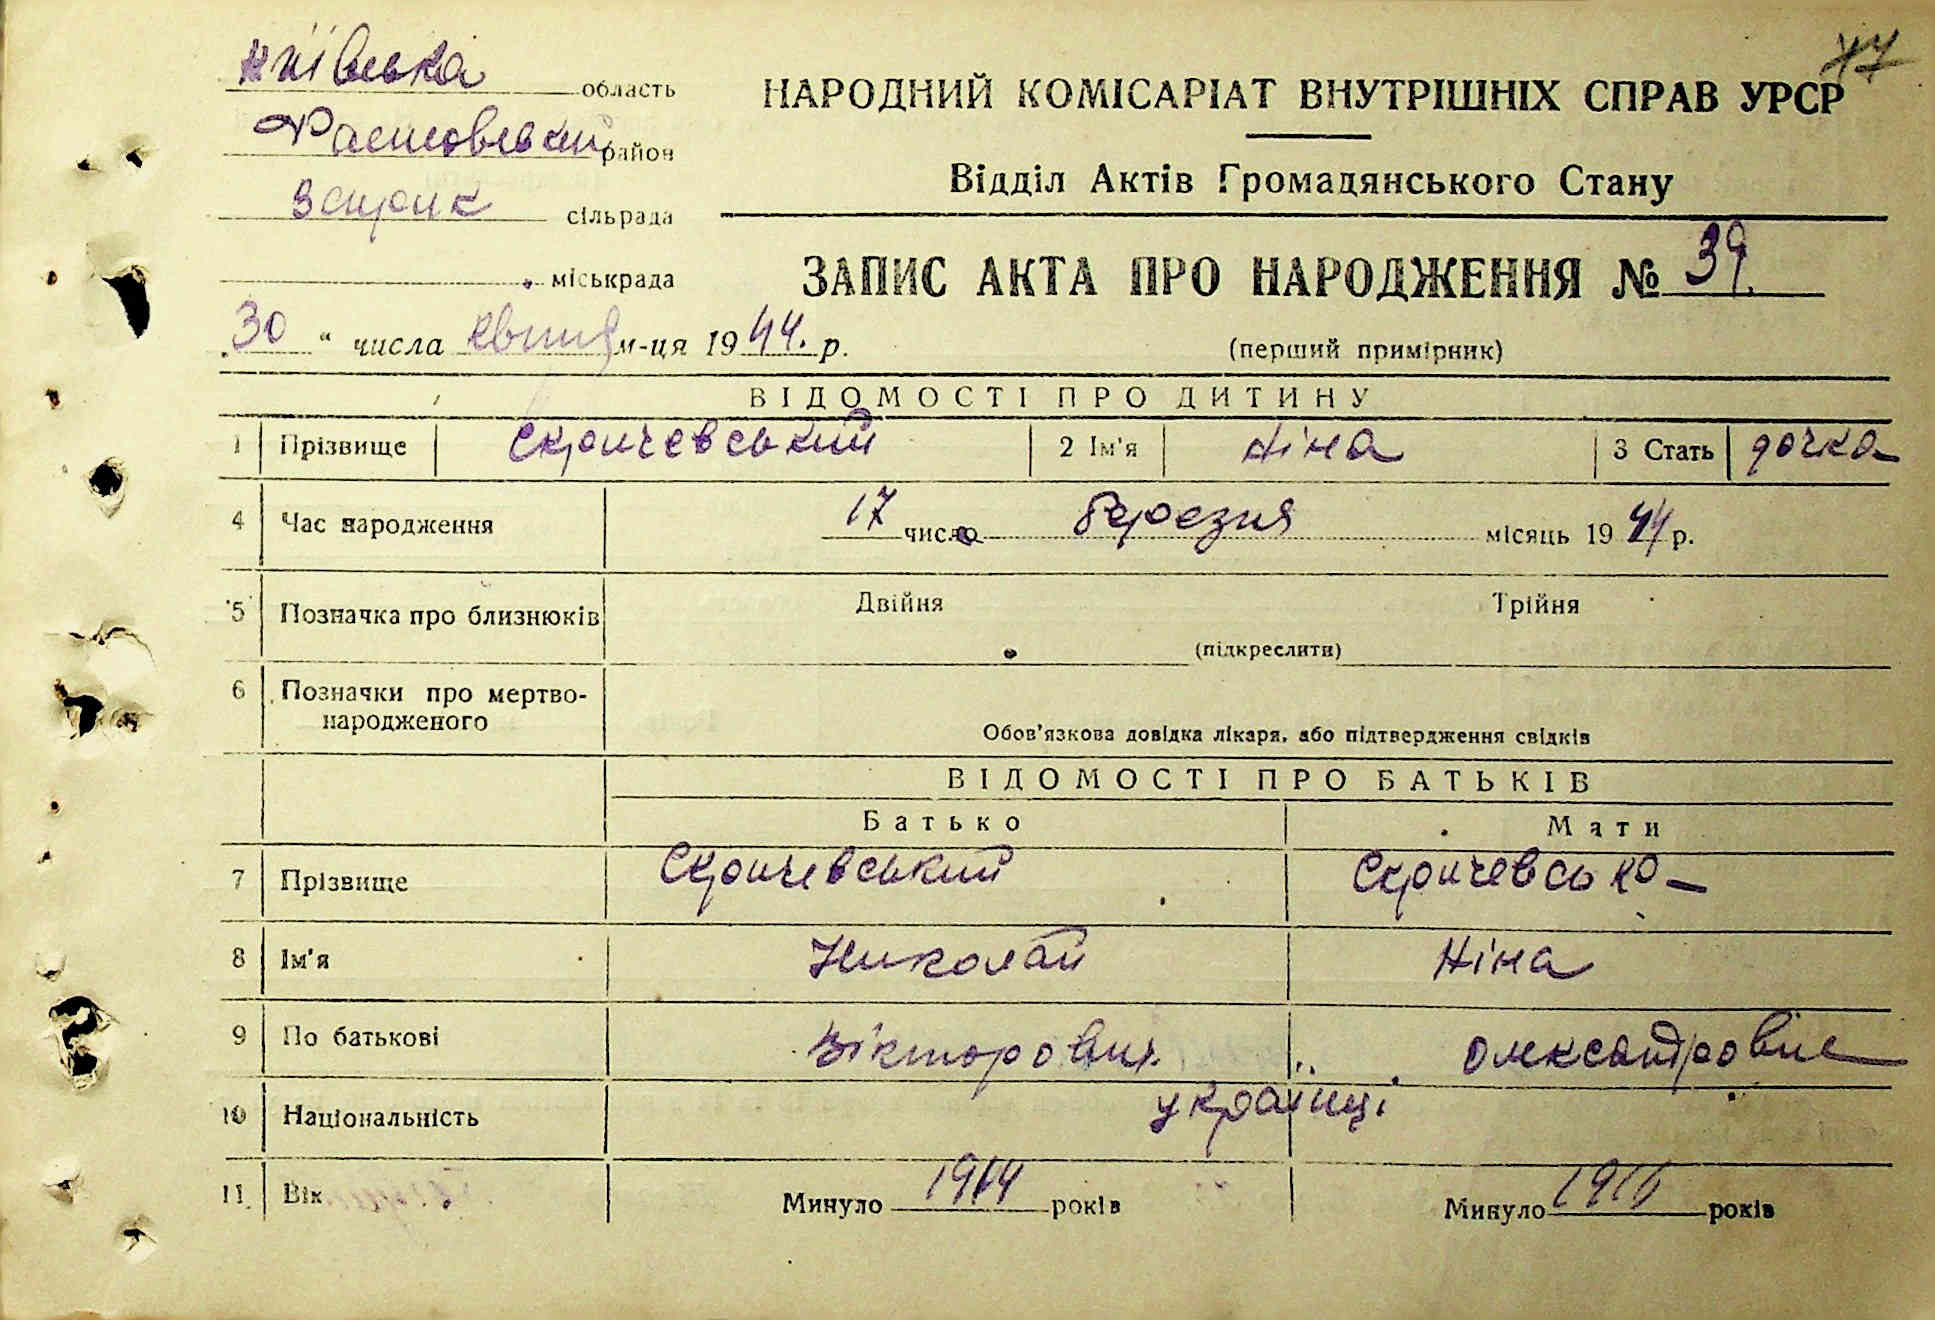 47
Київська область
Фастовський район
сільрада
міськрада
НАРОДНИЙ КОМІСАРІАТ ВНУТРІШНІХ СПРАВ УРСР
Відділ Актів Громадянського Стану
ЗАПИС АКТА ПРО НАРОДЖЕННЯ № 39.
(перший примірник)
„30 “ числа квітня м-ця 1944. р.
ВІДОМОСТІ ПРО ДИТИНУ
1 Прізвище Скричевський 2 Ім'я Ніна 3 Стать дочка
4 Час народження 17 число березня місяць 1944 р.
5 Позначка про близнюків Двійня Трійня
(підкреслити)
6 Позначки про мертво-
народженого
Обов'язкова довідка лікаря, або підтвердження свідків
ВІДОМОСТІ ПРО БАТЬКІВ
Батько Мати
7 Прізвище Скричевський Скричевська
8 Ім'я Николай Ніна
9 По батькові Вікторович Олександровне
10 Національність українці
11 Вік Минуло 1914 років Минуло років